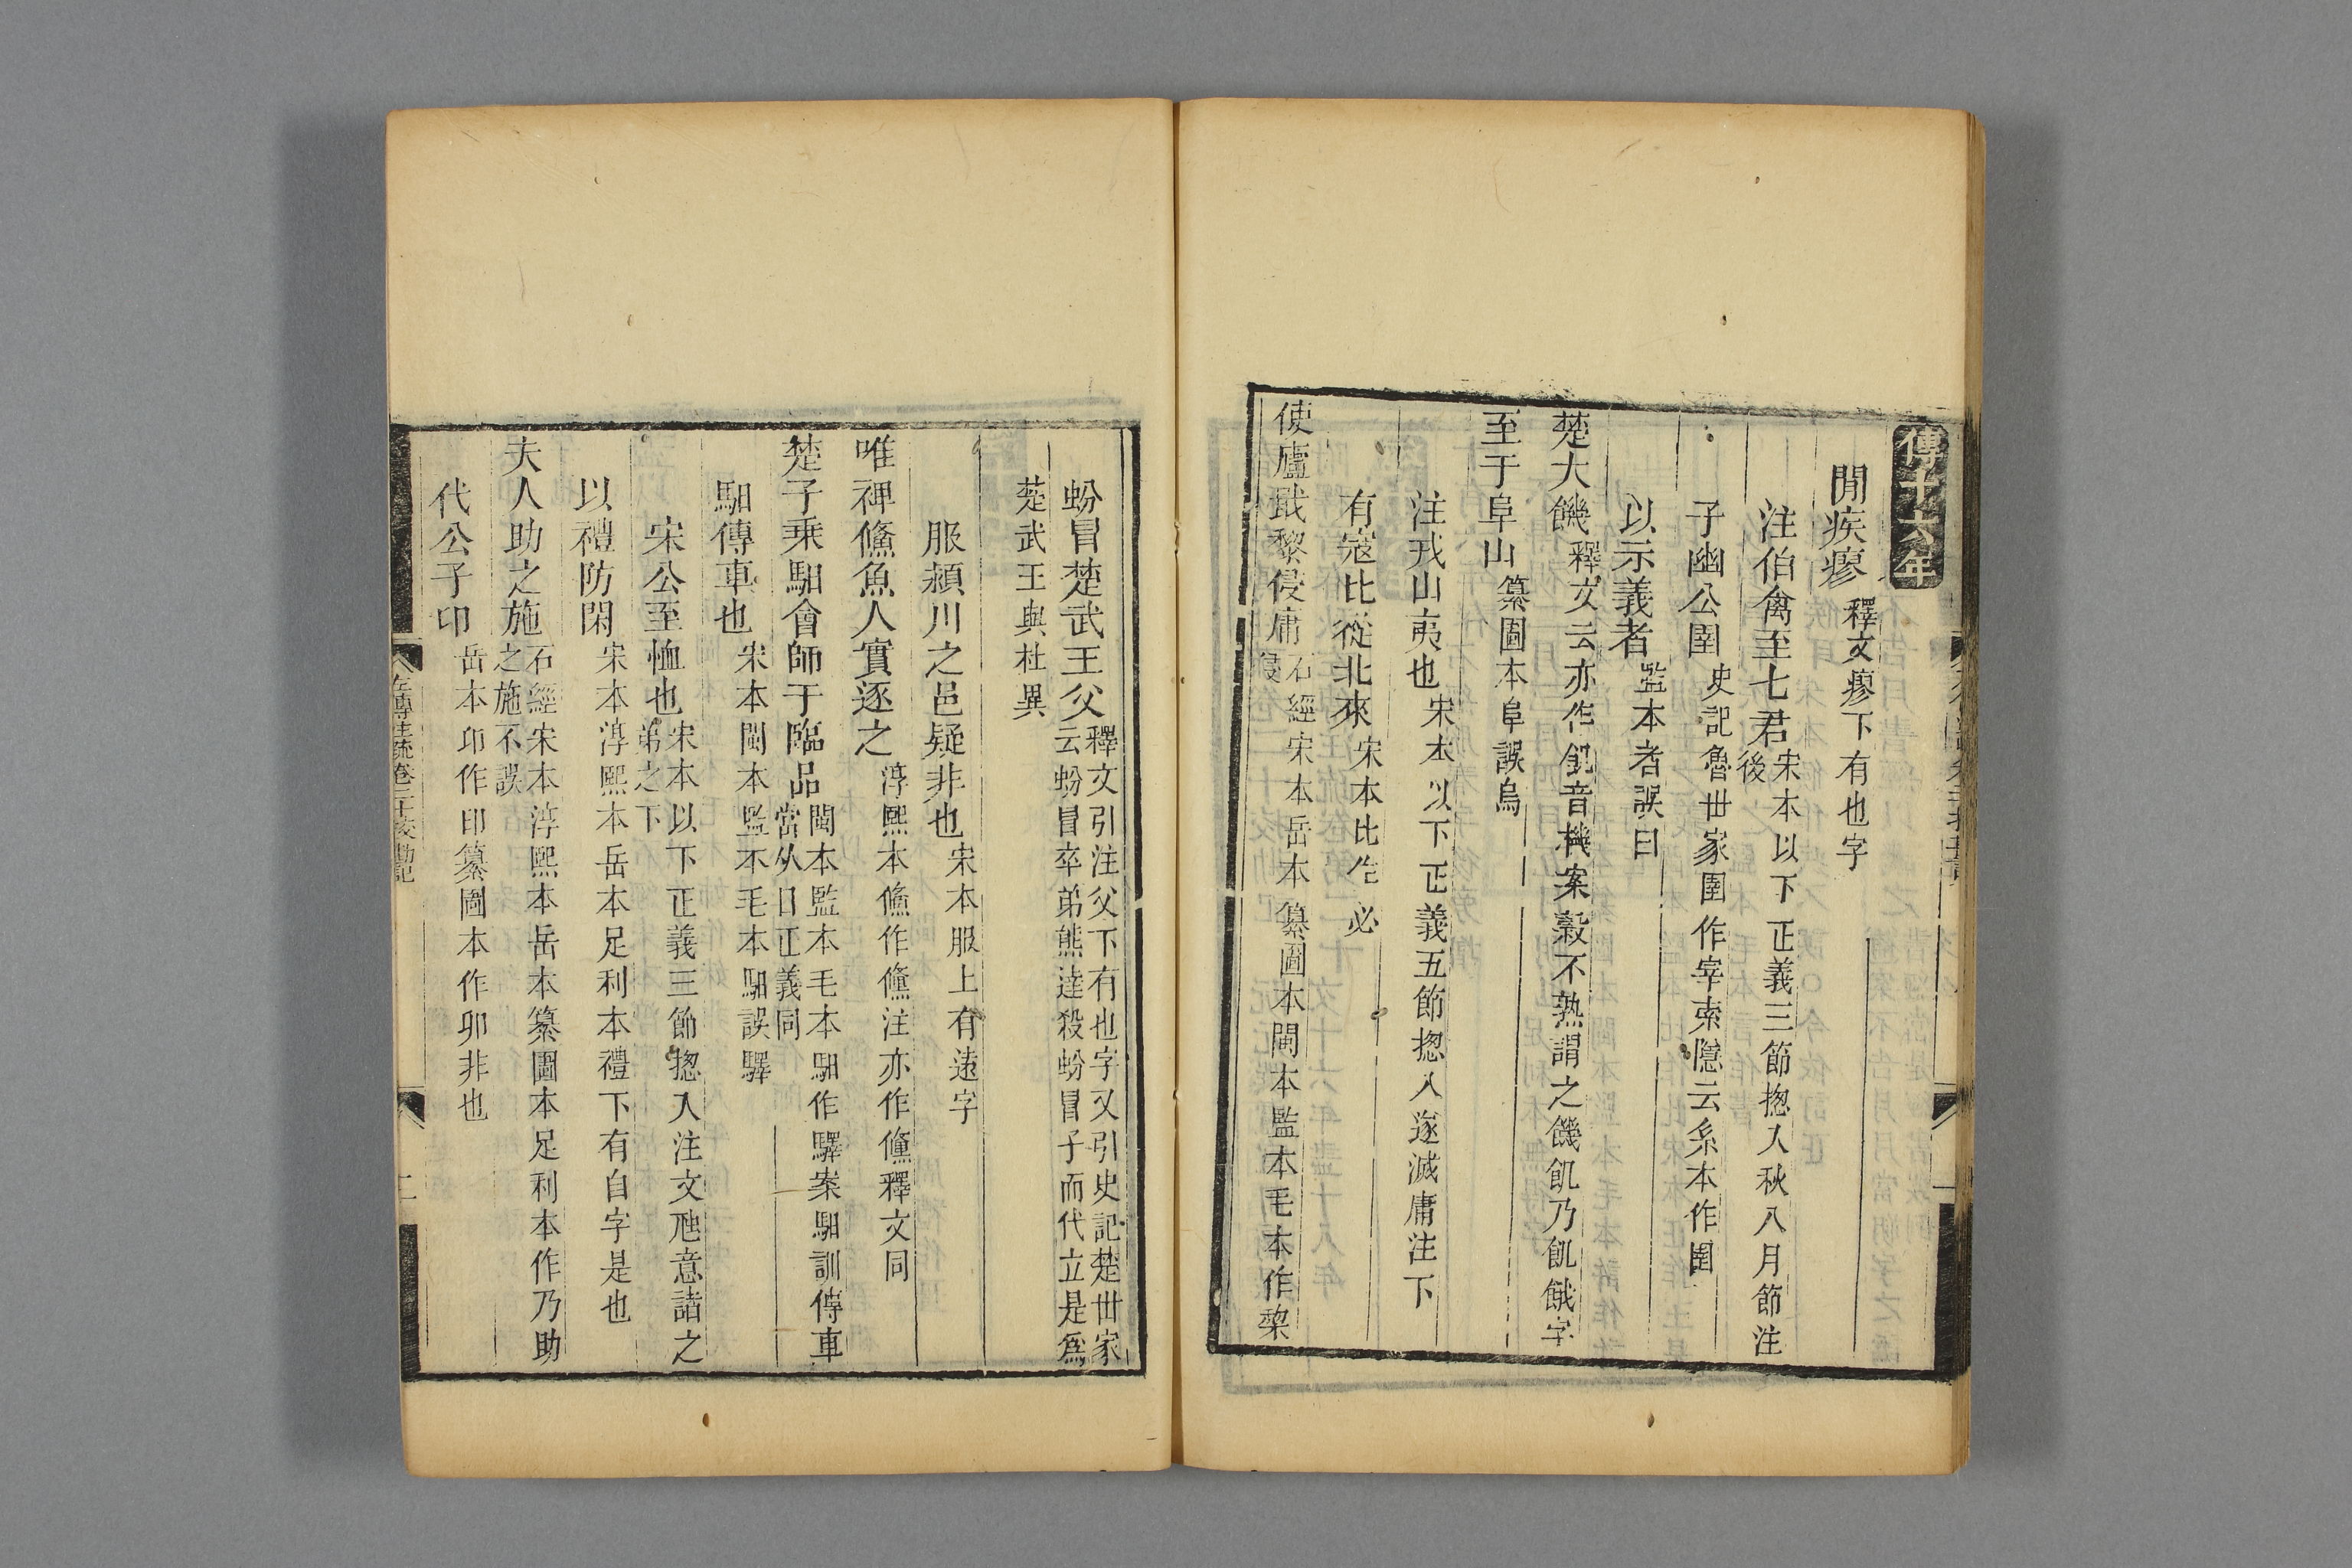 傳十六年
閒疾瘳釋文瘳下有也字
注伯禽至七君宋本以下正義三節摠入秋八月節注
後
子幽公圉史記魯世家圉作宰索隱云系本作圉
以示義者監本者誤曰
楚大饑釋文云亦作飢音機案穀不熟謂之饑飢乃飢餓字
至于阜山纂圖本阜誤烏
注戎山夷也宋本以下正義五節摠入遂滅庸注下
有寇比從北來宋本比作必
使廬戢黎侵庸石經宋本岳本纂圖本閩本監本毛本作棃
侵
蚡冒楚武王父釋文引注父下有也字又引史記楚世家
云蚡冒卒弟熊達殺蚡冒子而代立是爲
楚武王與杜異
服潁川之邑疑非也宋本服上有遠字
唯裨鯈魚人實逐之淳熙本鯈作儵注亦作儵釋文同
楚子乘馹會師于臨品閩本監本毛本馹作驛案馹訓傳車
當从日正義同
馹傳車也宋本閩本監不毛本馹誤驛
宋公至恤也宋本以下正義三節摠入注文虺意諸之
弟之下
以禮防閑宋本淳熙本岳本足利本禮下有自字是也
夫人助之施石經宋本淳熙本岳本纂圖本足利本作乃助
之施不誤
代公子卬岳本卬作印纂圖本作卯非也
左傳注疏卷二十校勘記
二